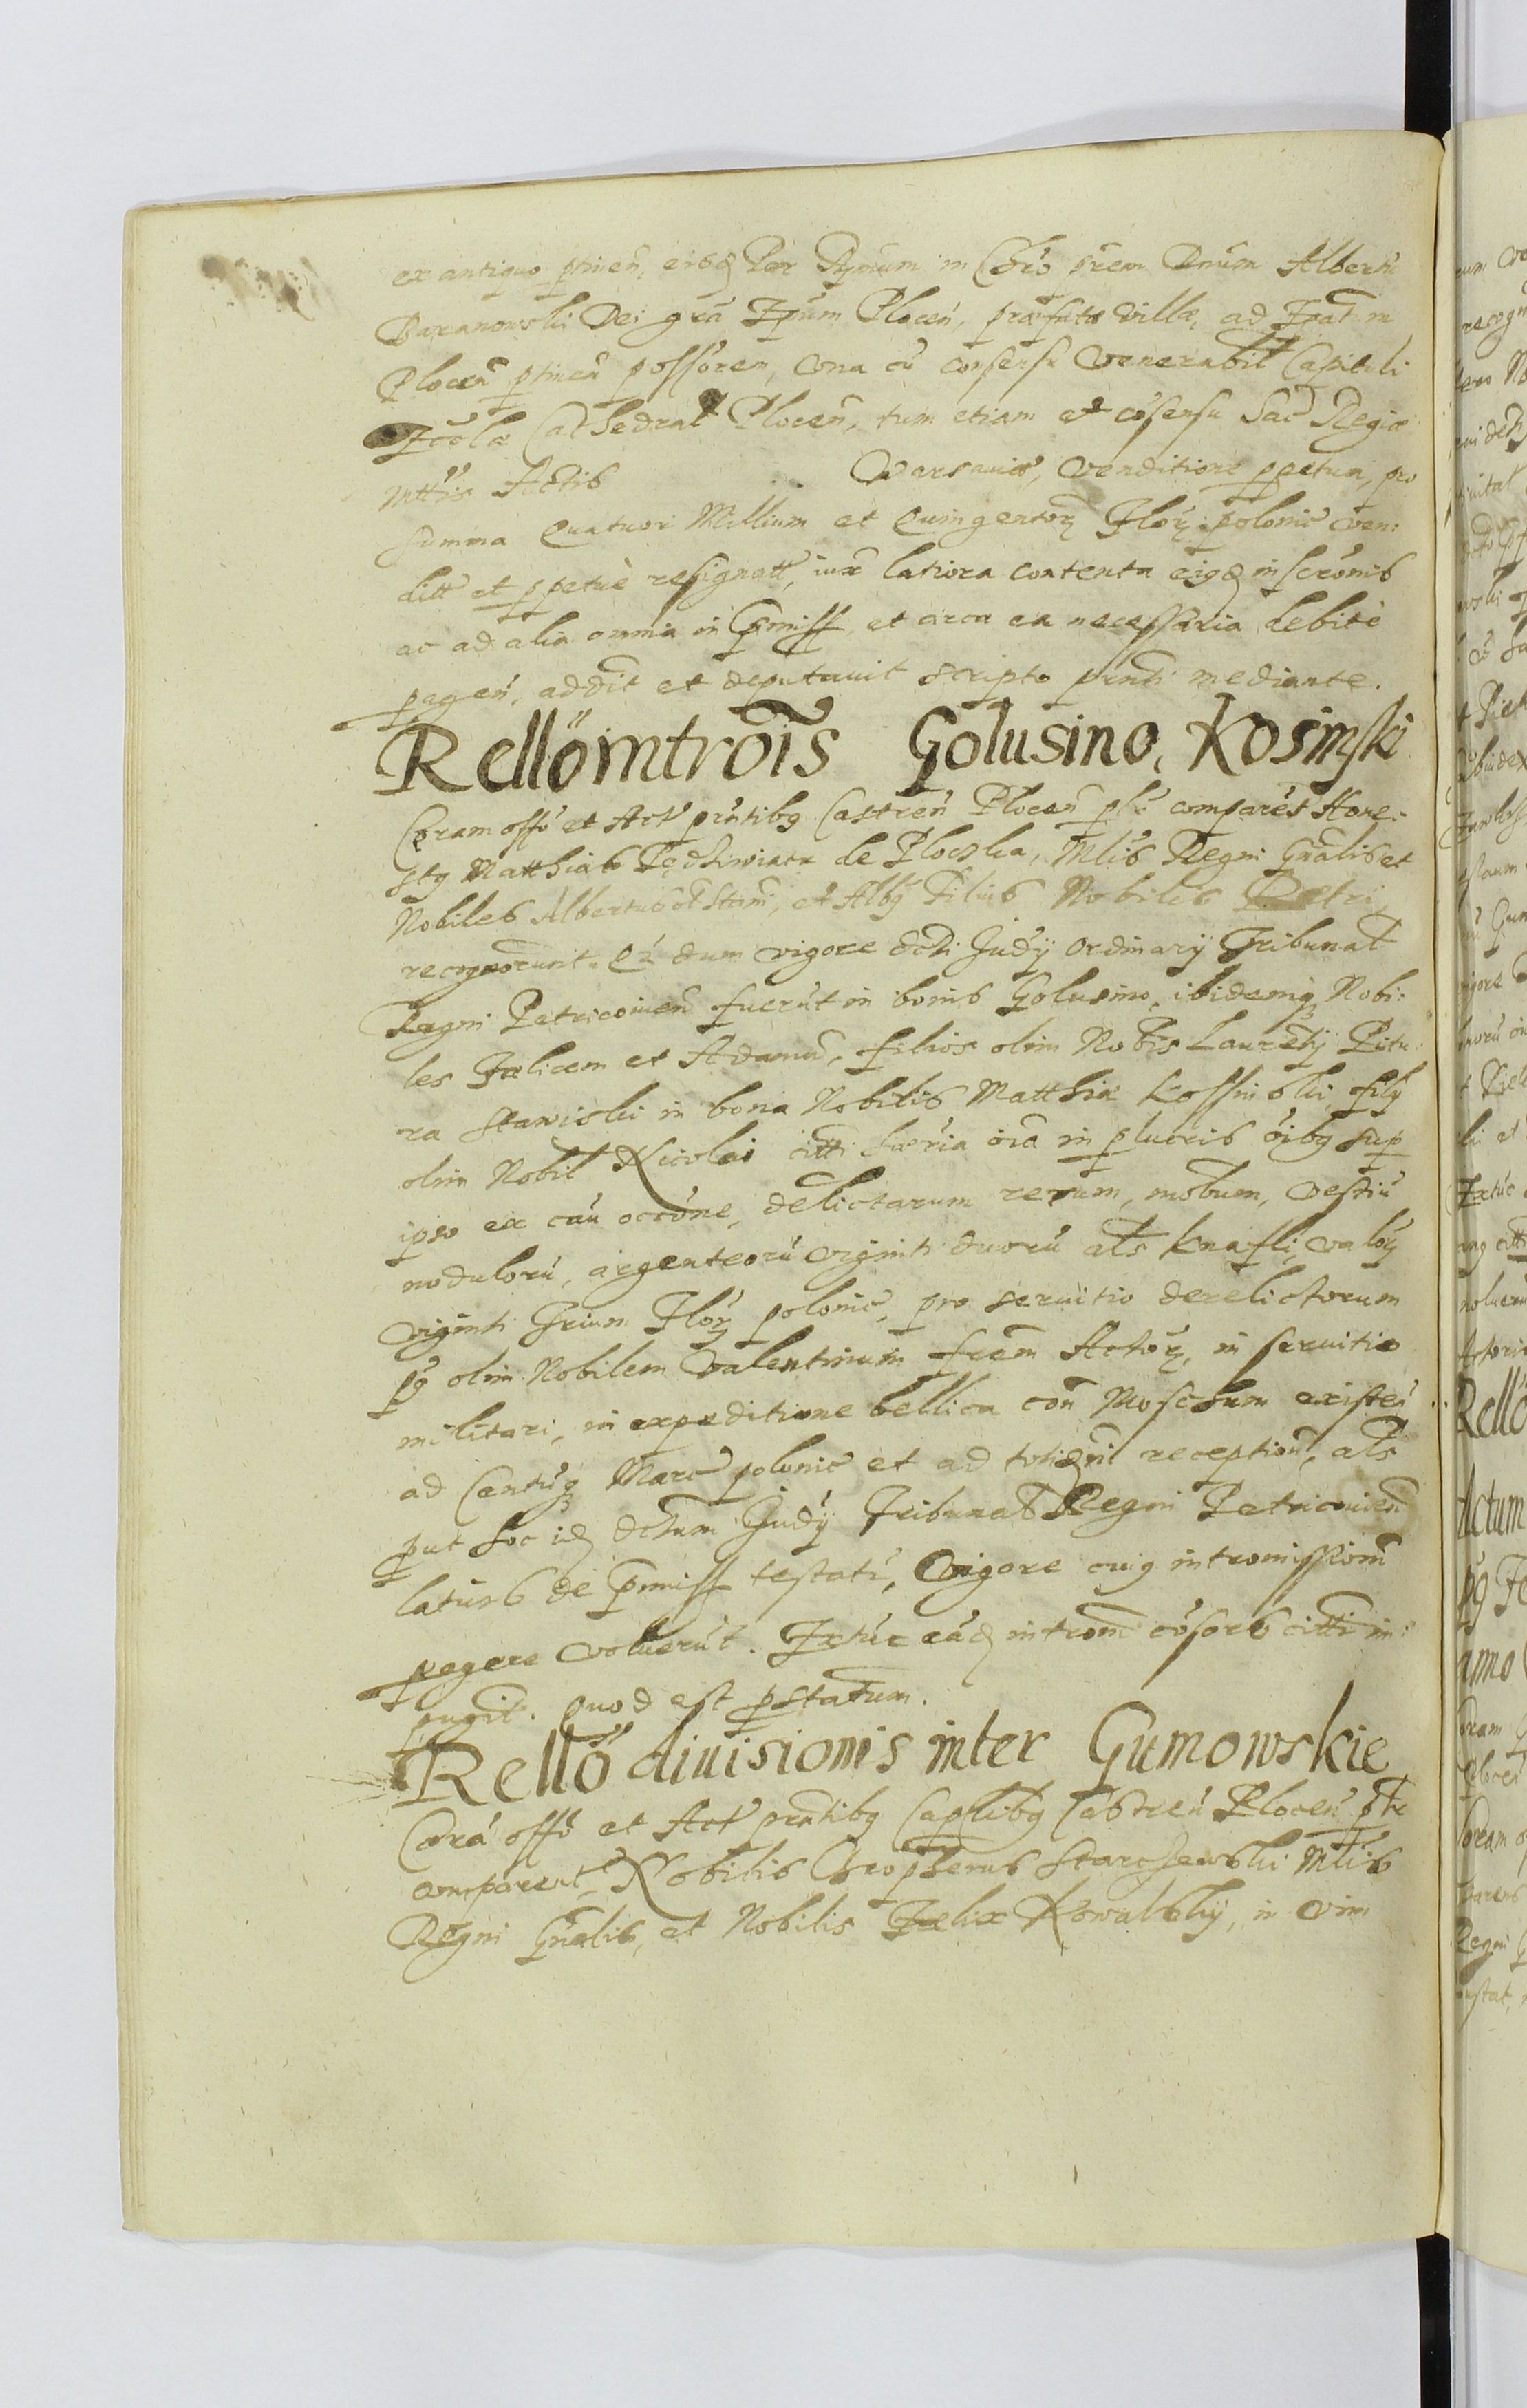 ex antiquo ptineñ, eisdę Per Rymum in Chro prem Dnum Albertu
Baranowski Dei gra Epum Plocen, præfatæ Villæ, ad Epatum
Plocen ptineñ possorem, una cu consensu Venerabil Capituli
Eccla Cathedral Plocen, tum etiam et cosensu Sac Regiæ
Mttis Actis Varsauiæ, Venditione ppetua, pro
summa Quatuor Millium et Quingentorꝝ Florꝝ polonic ven:
ditt et ppetuè resignatt, iux latiora contenta eigdę inscronis
ac ad alia omnia in Pmiss, et circa ea necessaria debitè
pagen, addit et deputauit scripto prnti mediante.
Rellö intröis Golusino, Kosinski
Coram offo et Act prntibg Castren Plocen psr compares Hone:
stg Matthias de Plocska, Mlis Regni Gnalis et
Nobiles Albertus et Stani, et Albg Filius Nobilis Petri,
recognorunt. Qz dum vigore dcti Judy Ordinarij Tribunal
Regni Petricouien fuerut in bonis Golusino, ibidemq Nobi:
les Fælicem et Adamum, filios olim Nobis Laurentij Pitu:
ra Stawiski in bona Nobilis Matthiæ Kossinski, filij
olim Nobil Nicolai citti hæria oia in plueris oibg sup
ipso ex cau occone, delictarum rerum, mobum, vestiu
nodulorũ, argenteorũ viginti duorũ als knafli, valorꝝ
viginti trium Florꝝ polonic, pro seruitio derelictorum
pg olim Nobilem Valentinum frem Actorꝝ, in seruitio
militari, in expeditione bellica con Moschum existen
ad Centug Marc polonic et ad totidni reception, als
put hoc idę dctum Judy Tribunal Regni Petricouien
latius de Pmiss testatr, Vigore cuig intromission
pagere voluerut. Extuc eadę introm cosors citti im:
pugit. Quod est pstatum.
Rellö diuisionis inter Gumowskie
Cora offo et Act prntibg Caplibg Castren Plocen psr
comparent, Nobilis Chrophorus Starczewski Mlis
Regni Gnalis, et Nobilis Fælix Kowalskij, in vim